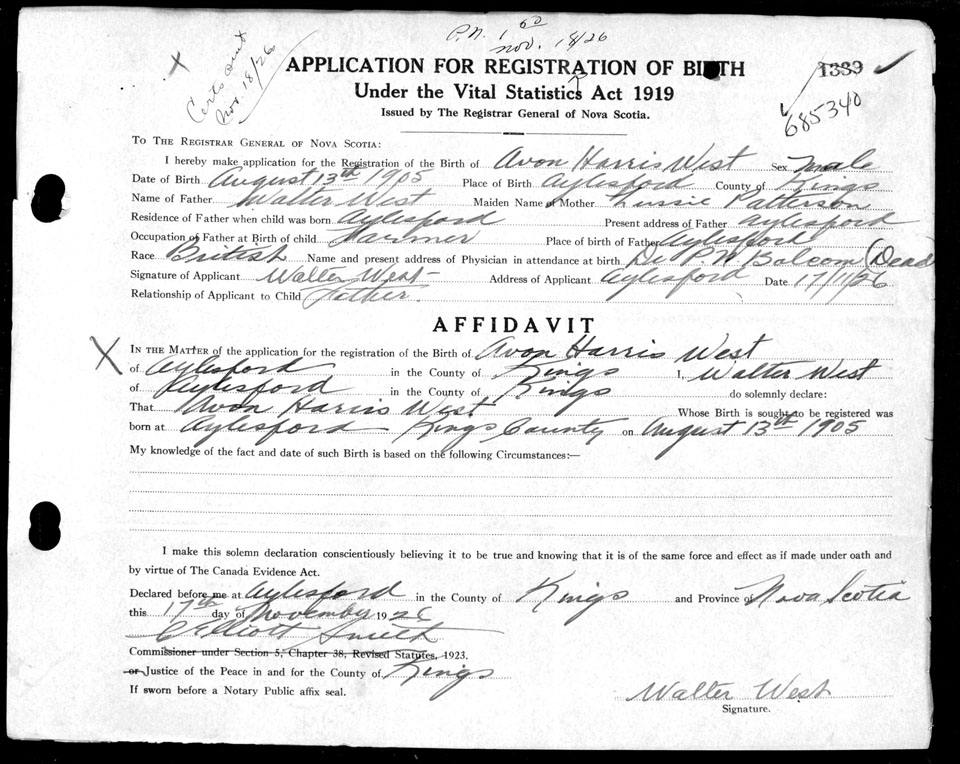 P.N. 1 60
Nov. 18/26
Certs out
Nov. 18/26
X
APPLICATION FOR REGISTRATION OF BIRTH
1339 ✓
Under the Vital Statistics Act 1919
✓ 685340
Issued by The Registrar General of Nova Scotia.
TO THE REGISTRAR GENERAL OF NOVA SCOTIA:
I hereby make application for the Registration of the Birth of Avon Harris West Sex male
Date of Birth August 13th 1905 Place of Birth Aylesford County of Kings
Name of Father Walter West Maiden Name of Mother Lussie Patterson
Residence of Father when child was born Aylesford Present address of Father Aylesford
Occupation of Father at Birth of child Farmer Place of birth of Father Aylesford
Race British Name and present address of Physician in attendance at birth Dr P.N Balcom (Dead)
Signature of Applicant Walter West Address of Applicant Aylesford Date 17/11/26
Relationship of Applicant to Child Father.
AFFIDAVIT
X IN THE MATTER of the application for the registration of the Birth of Avon Harris West
of Aylesford in the County of Kings I, Walter West
of Aylesford in the County of Kings do solemnly declare:
That Avon Harris West Whose Birth is sought to be registered was
born at Aylesford Kings County on August 13th 1905
My knowledge of the fact and date of such Birth is based on the following Circumstances:—
I make this solemn declaration conscientiously believing it to be true and knowing that it is of the same force and effect as if made under oath and
by virtue of The Canada Evidence Act.
Declared before me at Aylesford in the County of Kings and Province of Nova Scotia
this 17th day of November 1926
C Elliott Smith
Commissioner under Section 5, Chapter 38, Revised Statutes, 1923.
or Justice of the Peace in and for the County of Kings
If sworn before a Notary Public affix seal.
Walter West
Signature.